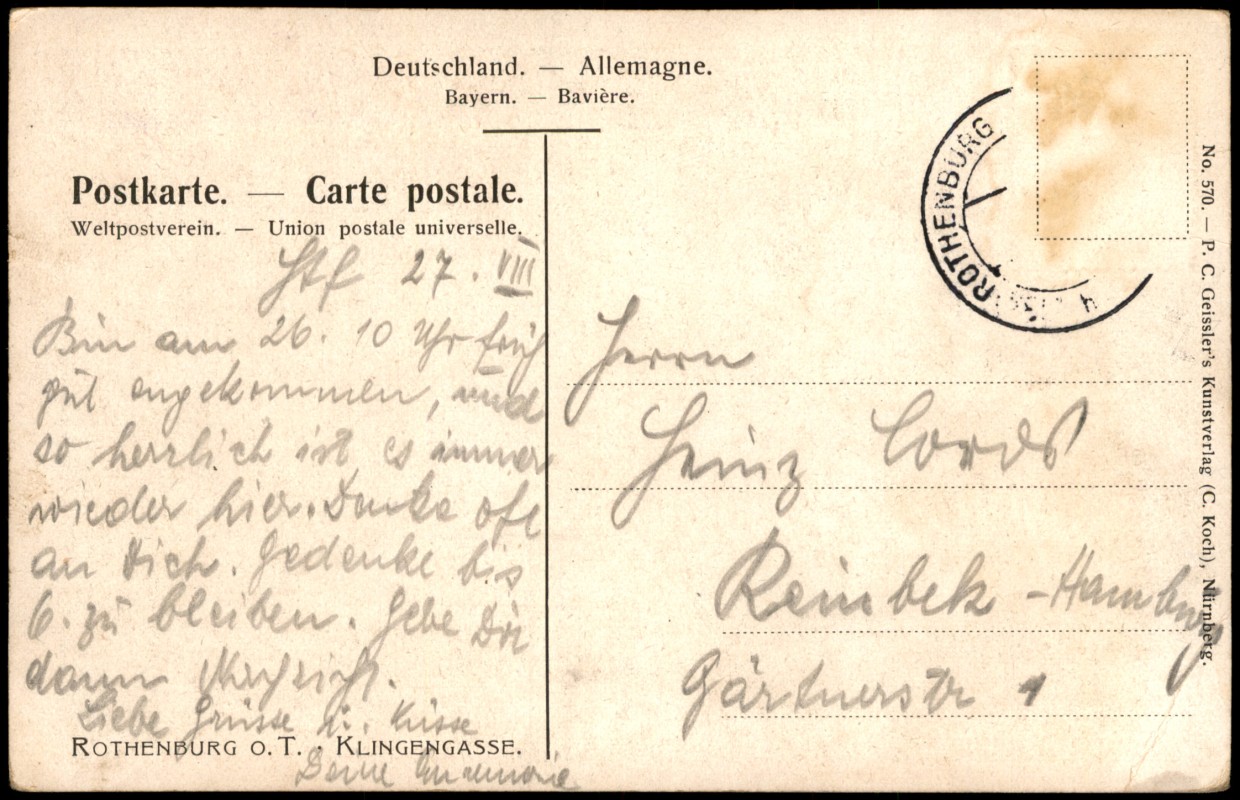 Deutschland. — Allemagne.
Bayern. — Bavière.
Postkarte. — Carte postale.
Weltpostverein. — Union postale universelle.
27. VIII
Bin am 26. 10 Uhr früh
gut angekommen, und
so herrlich ist es immer
wieder hier. Denke oft
an Dich. Gedenke bis
6. zu bleiben. Gebe Dir
dann Nachricht.
Liebe Grüsse u. Küsse
Deine Annemarie
ROTHENBURG O. T. · KLINGENGASSE.
ROTHENBURG
Herrn
Heinz Cords
Reinbek - Hamburg
Gärtnerstr 1
No. 570. — P. C. Geissler's Kunstverlag (C. Koch), Nürnberg.